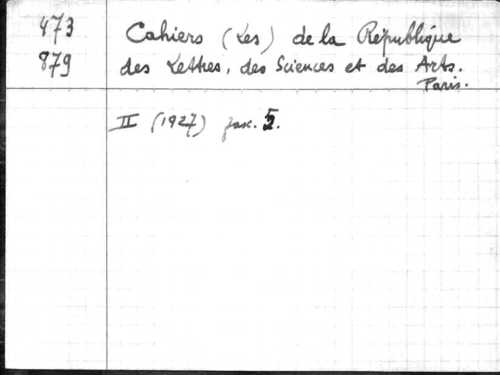 473
879
Cahiers (Les) de la République
des Lettres, des Sciences et des Arts.
Paris.
II (1927) fasc. 5.